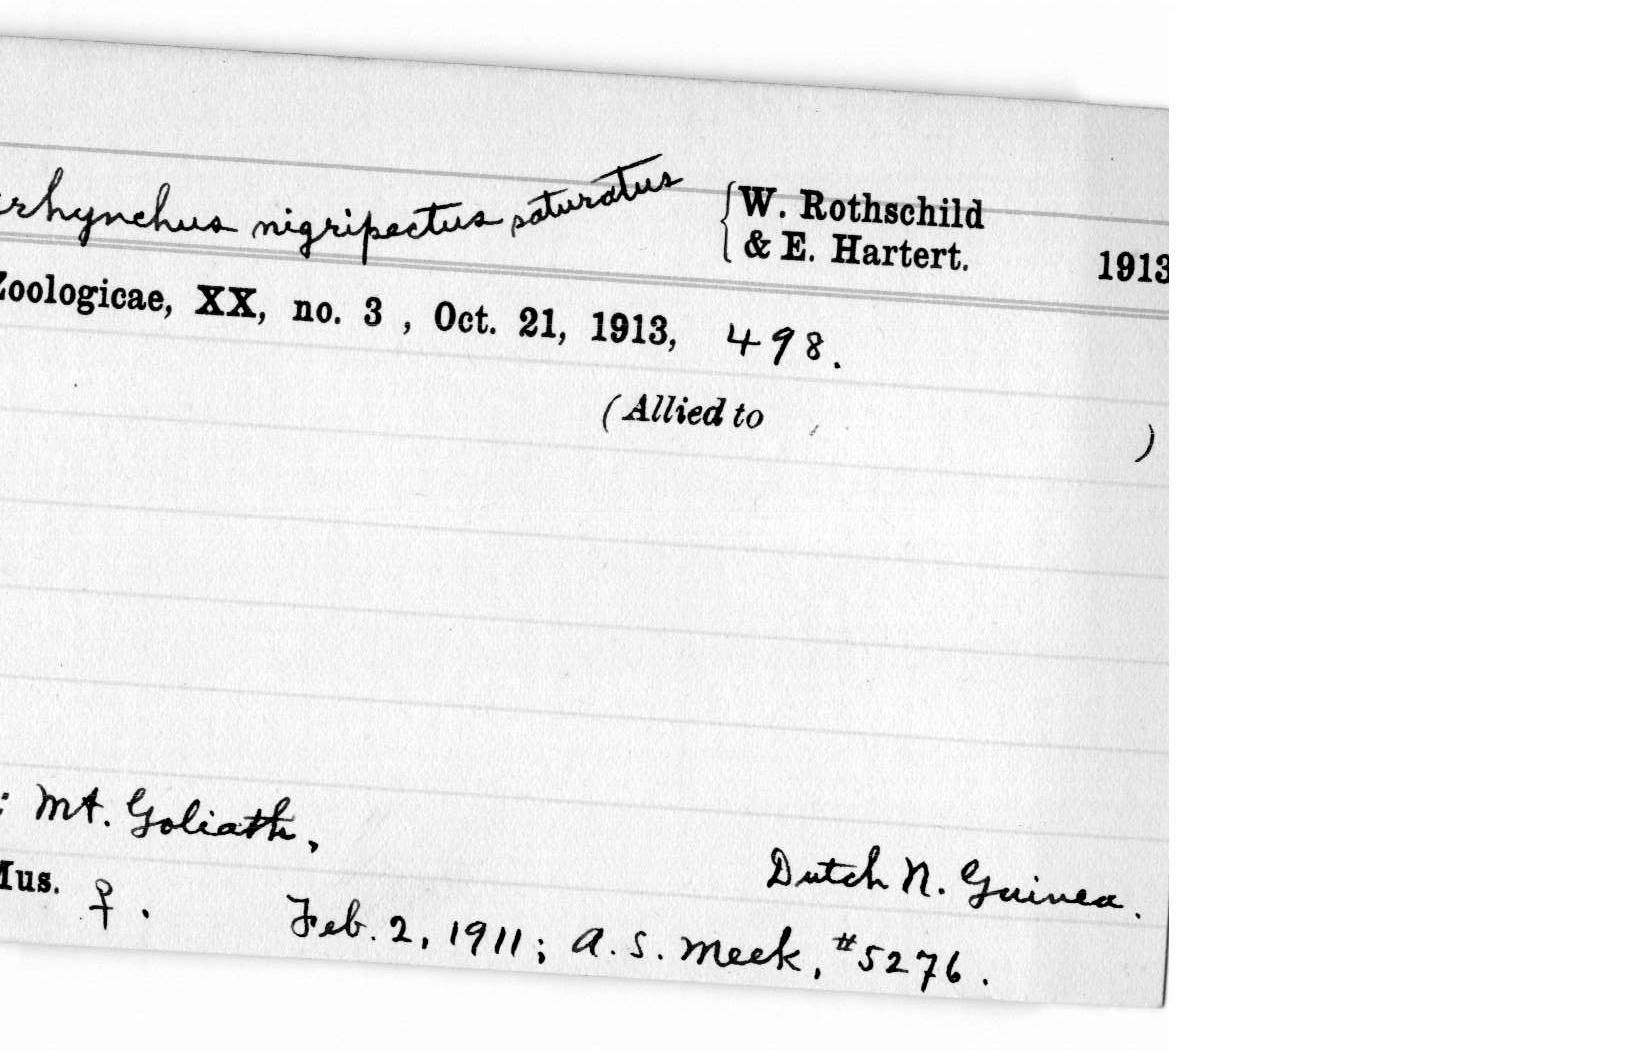 rhynchus nigripectus saturatus { W. Rothschild
& E. Hartert. 1913
Zoologicae, XX, no. 3 , Oct. 21, 1913, 498.
(Allied to )
: Mt. Goliath,
Dutch N. Guinea.
Mus. ♀. Feb. 2, 1911; A. S. Meek, #5276.